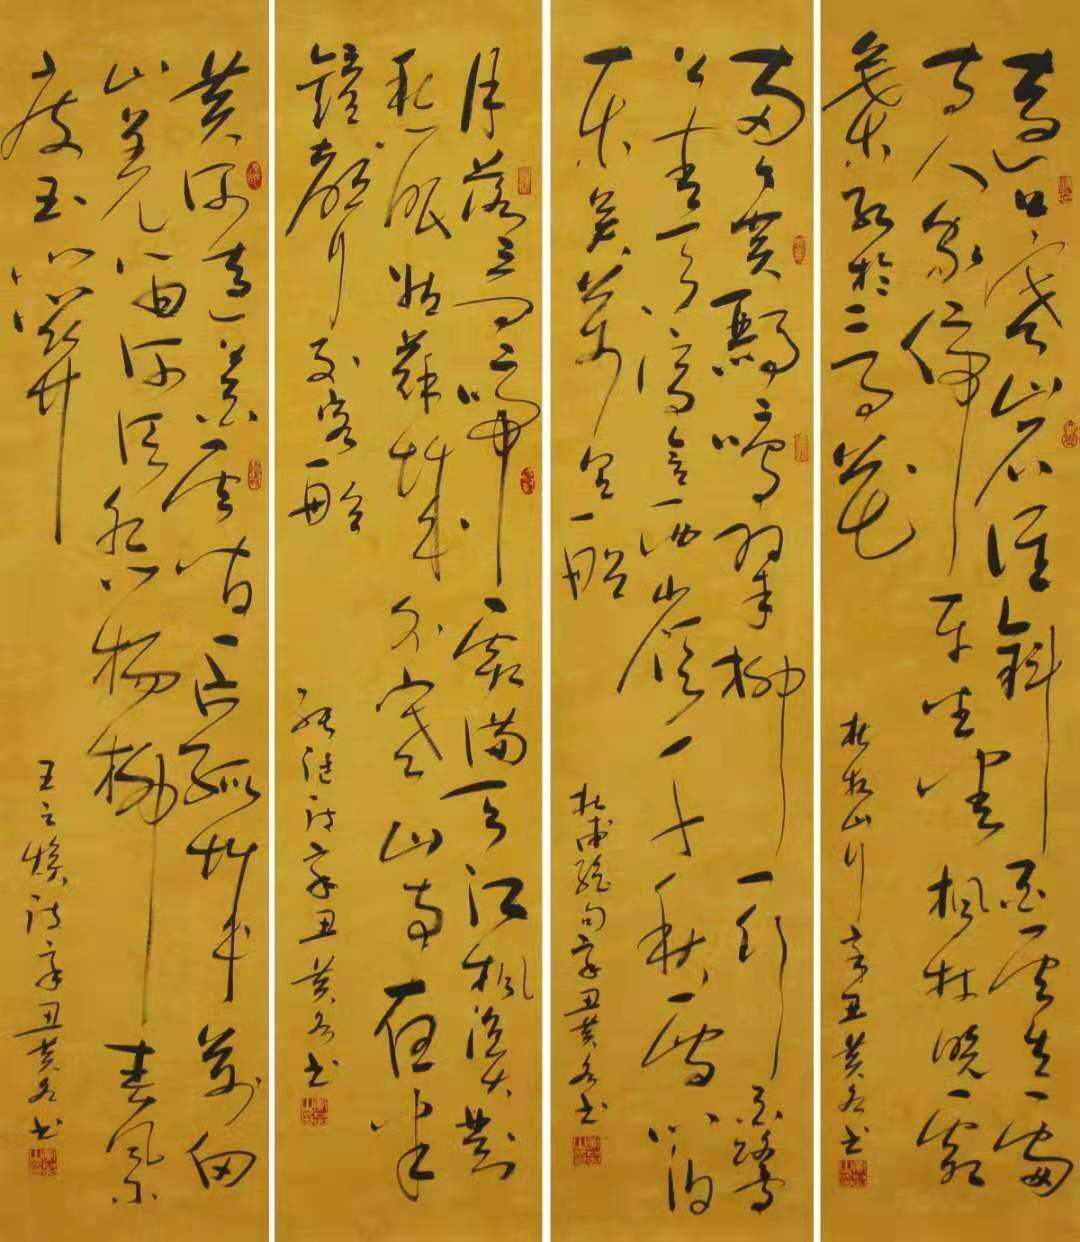 遠上寒山石径斜白雲生處
有人家停車坐愛枫林晚霜
葉紅於二月花
杜牧山行辛丑黄书
兩个黄鸝鳴翠柳一行白鹭
上青天窗含西嶺千秋雪门泊
東吴萬里船
杜甫绝句辛丑黄书
月落乌啼霜满天江枫渔火對
愁眠姑蘇城外寒山寺夜半
鐘聲到客船
张继诗辛丑黄书
黄河遠上白雲间一片孤城萬仞
山羌笛何须怨杨柳春風不
度玉门关
王之涣诗辛丑黄书